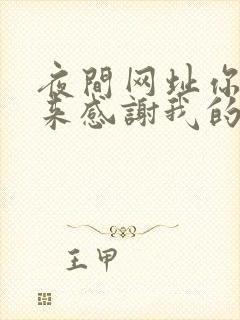 夜間网址你
来感謝我的
王甲